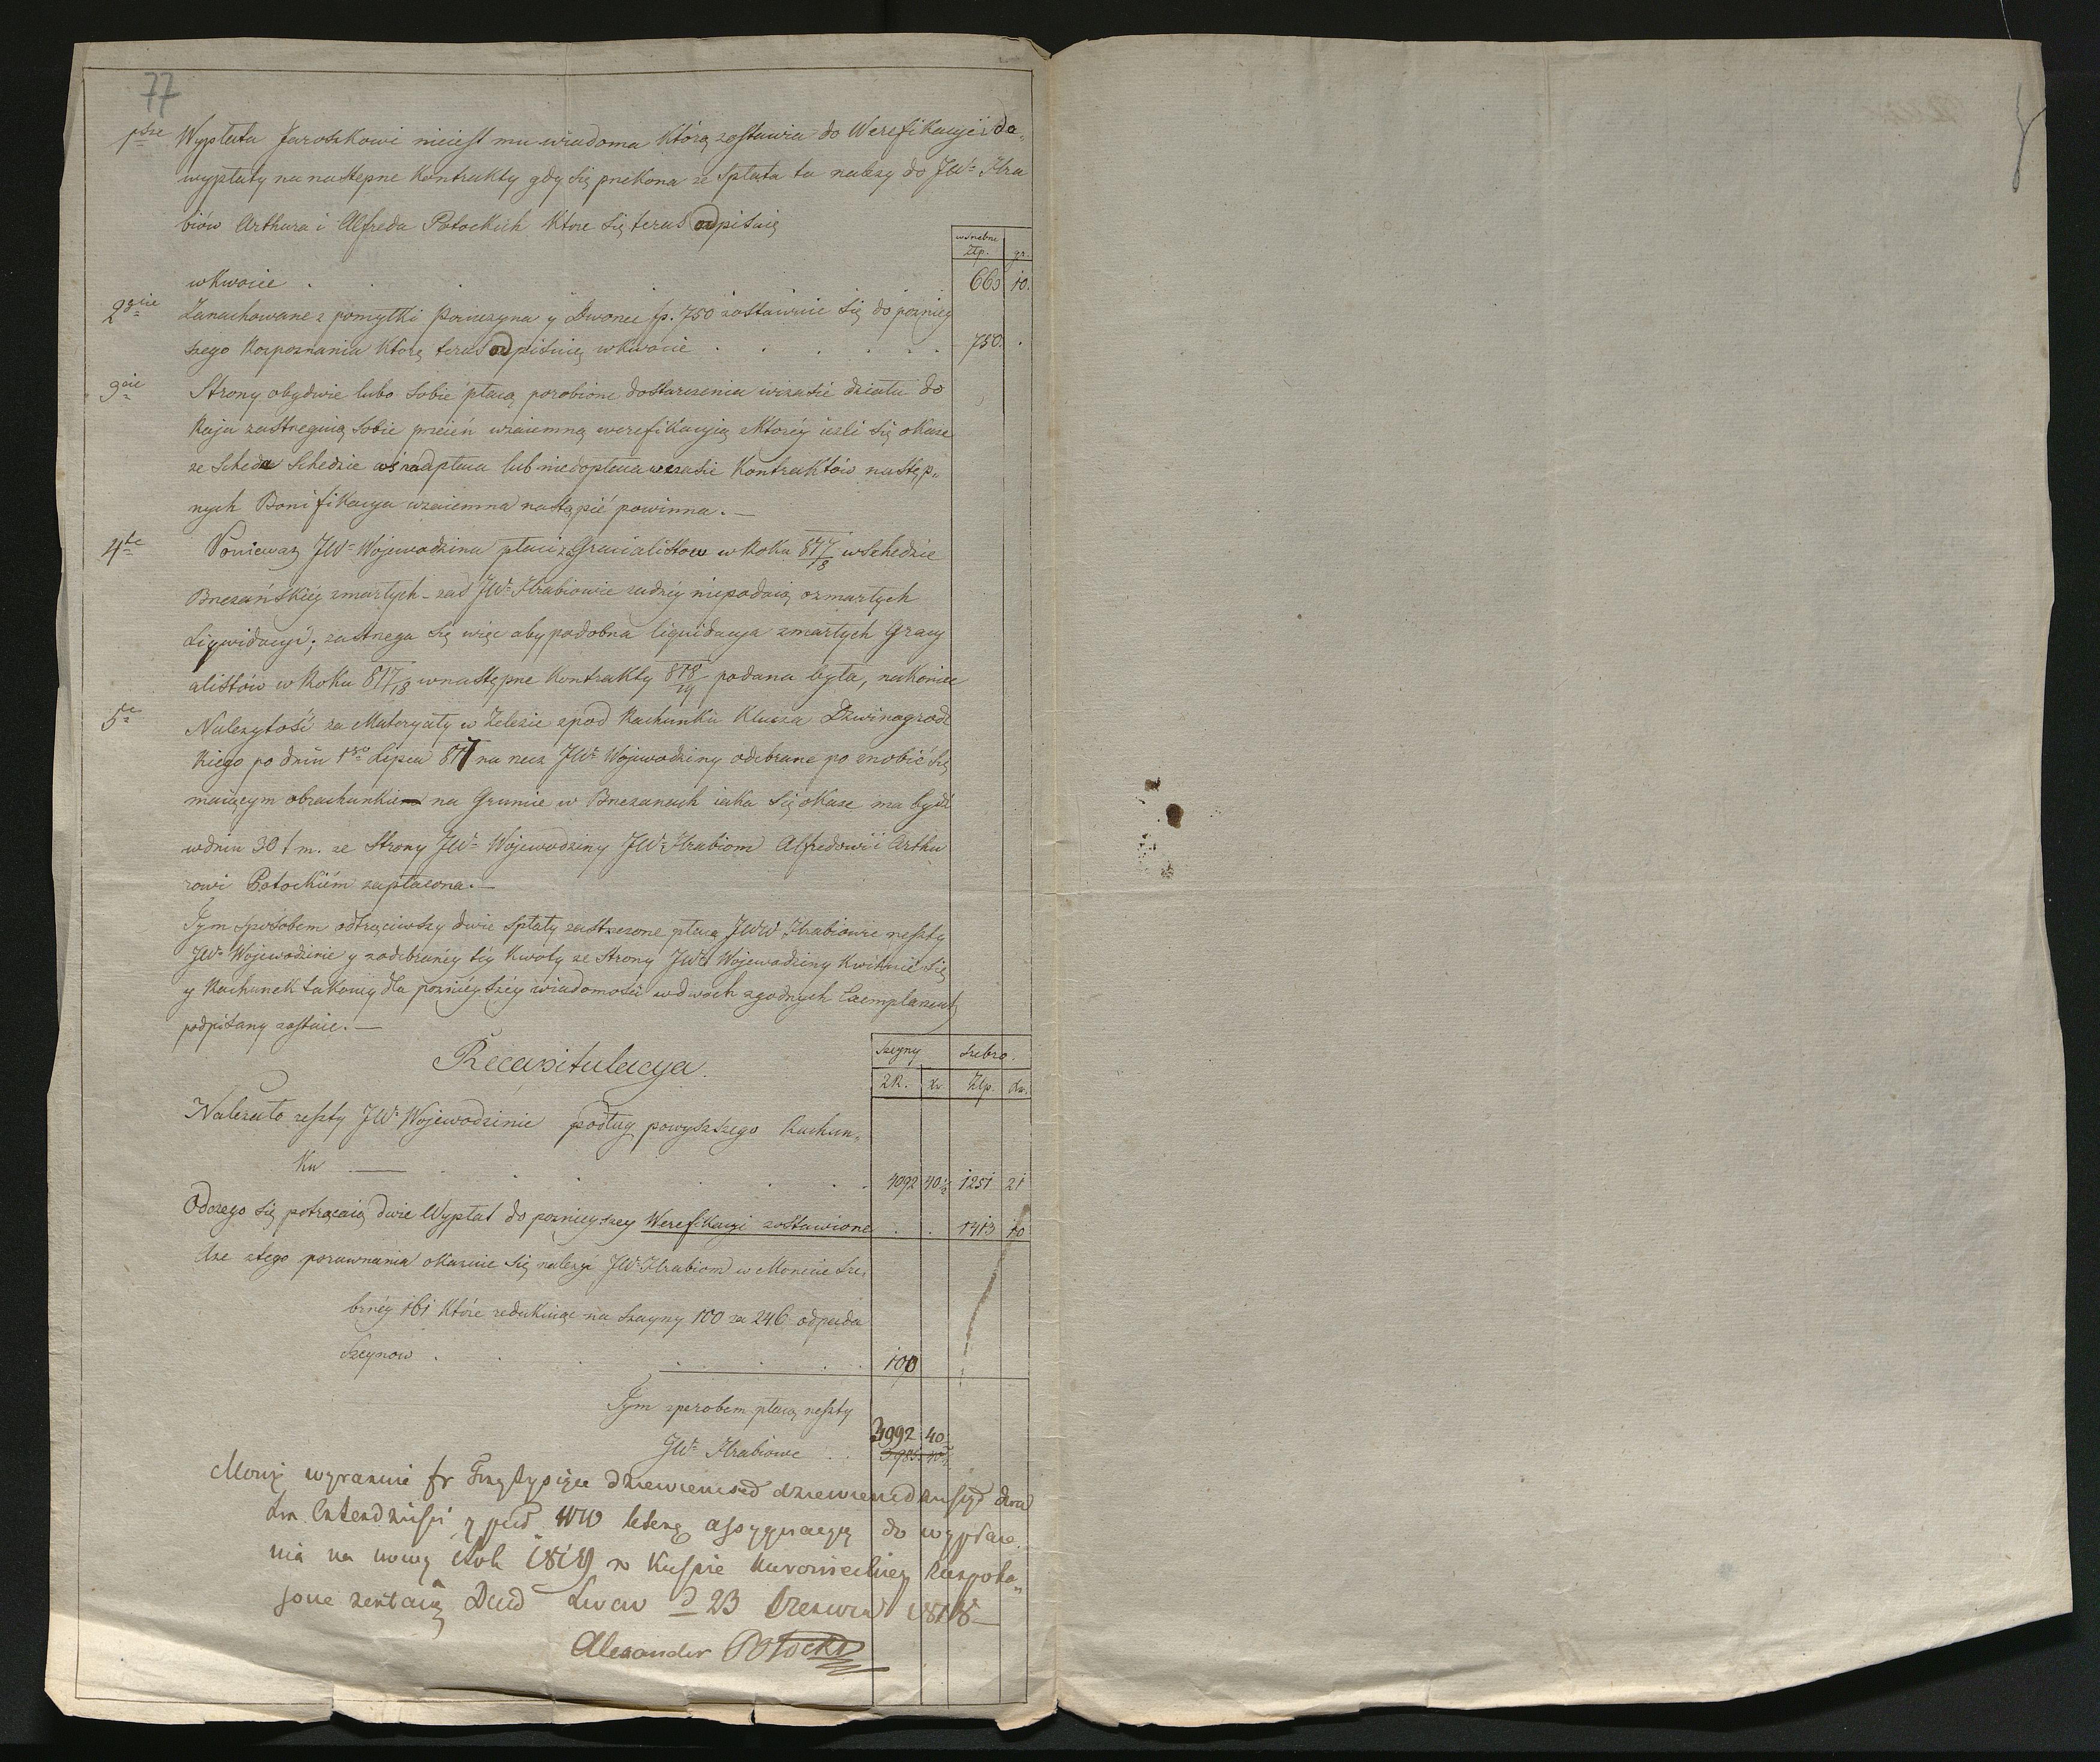 77
1sze Wypłata Jaroszkowi nieiest mu wiadoma którą zostawia do Werefikacyi i do„
wypłaty na nastepne Kontrakty gdy się przekona ze Spłata ta nalezy do JWch Hra
biów Arthura i Alfreda Potockich Ktore się teras odpisuią
w srebrze
Złp. gr.
w Kwocie . . . 663 10.
2gie Zarachowane z pomyłki y Dworu fr. 750 zostawuie się do pozniey
szego Rozpoznania Którą teras odpisuią w Kwocie . . . 750. .
3cie Strony obydwie lubo sobie płacą porobione dostarczenia w czasie działu do
Kąją zastrzegaią sobie przecień wzaiemną werefikacyią z Któréy iezli się okaze
ze Scheda Schedzie coś nadpłaca lub niedopłaca w czasie Kontraktów następ„
nych Bonifikacya wzaiemna nastąpić powinna. —
4te Poniewaz JWa Wojewodzina płaci za Gracialistow w Roku 817/8 w Schedzie
Brzezańskiéy zmarłych – zaś JWi Hrabiowie zadnéy niepodaią o zmarłych
Liqwidacyi; zastrzega się więc aby podobna liquidacya zmarłych Gracy
alistów w Roku 817/18 w nastepne Kontrakty 818/19 podana była, nakoniec
5te Nalezytość za Materyały w Zelezie z pod Rachunku Klucza Dzwinogrodz
Kiego po dniu 1go Lipca 817 na rzecz JWj Wojewodziny odebrane po zrobić się
maiącym obrachunkiem na Gruncie w Brzezanach iaka się okaze ma bydź
w dniu 30 t. m. ze Strony JWj Wojewodziny JWm Hrabiom Alfredowi i Arthu
rowi Potockiém zapłacona. —
Tym sposobem odtrąciwszy dwie spłaty zastrzezone płacą JWW Hrabiowie reszty
JWj Wojewodzinie y z odebranéy téy Kwoty ze Strony JWj Wojewodziny Kwituie się
y Rachunek takowy dla poznieyszéy wiadomości w dwoch zgodnych Exemplarzach
podpisany zostaie. —
Recapitulacya.
Szeyny Srebro.
ZR. Xr. Złp. Xr.
Nalezało reszty JWj Wojewodzinie podług powyzszego Rachun„
Ku — . . . 4092 40½ 1251 21
Od czego się potrącaią dwie Wypłat do poznieyszey Werefikacyi zostawione . . 1413 10
Aze z tego porownania okazuie się nalezyć JWm Hrabiom w Monecie Sre„
brnéy 161 Które redukuiąc na Szeyny 100 za 246 odpada
Szeynow . . . 100
Tym sposobem płacą reszty
JWi Hrabiowe . . 3992 40
Mowię wyraznie fr Trzy tysiące dziewiencset dziewiendziesiąt dwa
Xr. czterdziesci y pod WW literą assygnacyę do wypłace„
nia na nowy Rok 1819 w Kassie zaspoko„
jone zostaią Dnd Lwow d 23 Czerwca 1818 —
Alexander Potocki